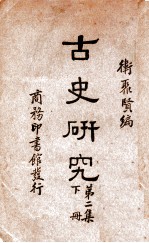 衛聚賢編
古史研究
第二集
下冊
商務印書館發行